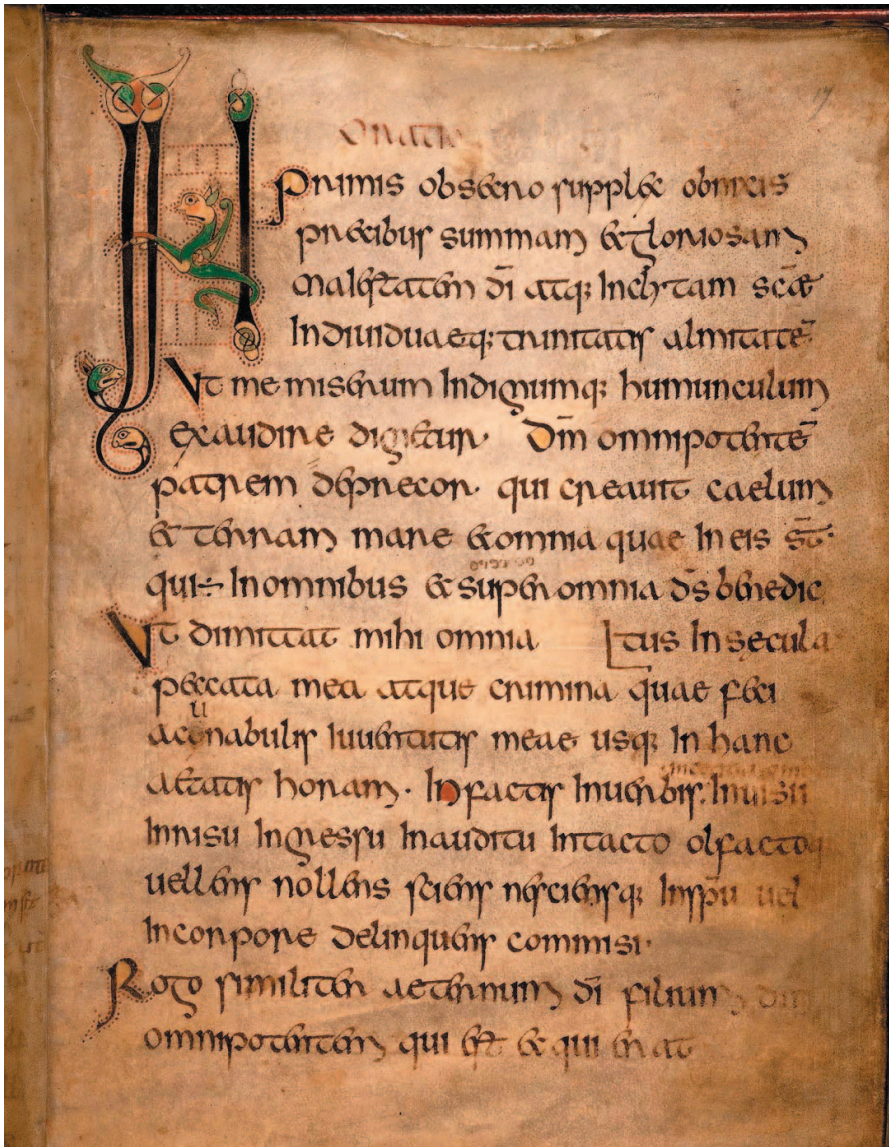 17
Oratio
IN primis obsecro supplex obnixis
precibus summam et gloriosam
maiestatem dī atq; inclytam scæ
individuaeq; trinitatis almitatē
Ut me miserum indignumq; humunculum
exaudire dignetur. Dm̄ omnipotentē
patrem deprecor. qui creavit caelum
et terram mare et omnia quae in eis st̄.
qui ÷ in omnibus et super omnia ds̄ benedic
Ut dimittat mihi omnia tus in secula
peccata mea atque crimina quae feci
a cunabulis iuventutis meae usq; in hanc
aetatis horam. In factis in verbis. in visu
in risu in gressu in auditu in tacto olfactoq
vellens nollens sciens nesciensq; in spū vel
in corpore delinquens commisi.
Rogo similiter aeternum dī filium dm̄
omnipotentem qui est et qui erat